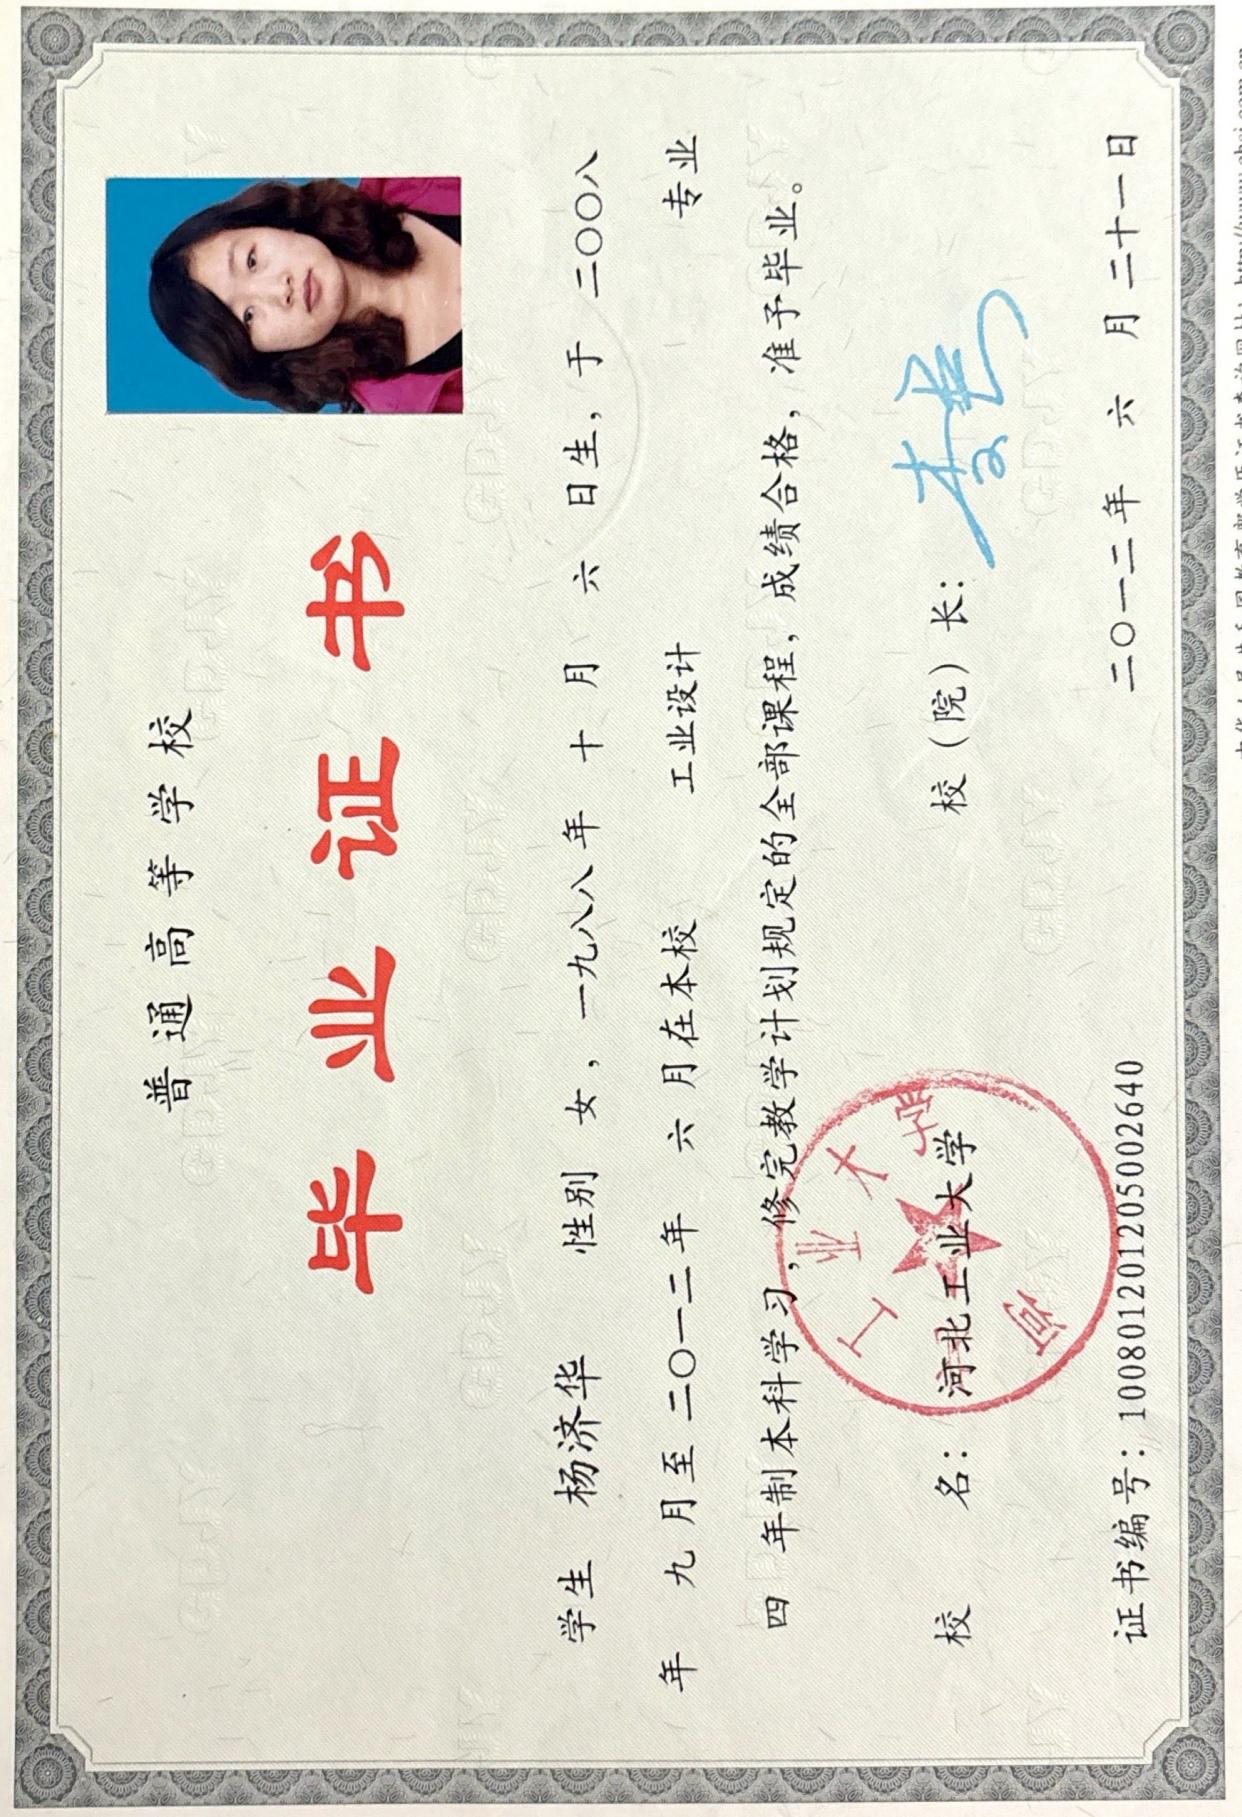 普通高等学校
毕业证书
学生 杨济华 性别 女，一九八八年 十 月 六 日生，于 二〇〇八
年 九月至二〇一二年 六月在本校 工业设计 专业
四 年制本科学习，修完教学计划规定的全部课程，成绩合格，准予毕业。
校 名：河北工业大学 校（院）长：
河 工业大学
证书编号：100801201205002640 二〇一二年 六 月 二十一日